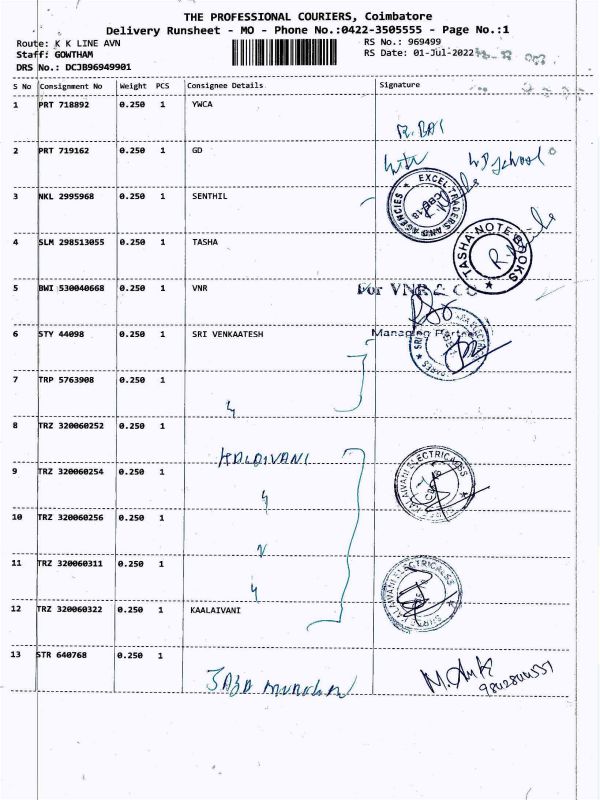 THE PROFESSIONAL COURIERS, Coimbatore
Delivery Runsheet - MO - Phone No.:0422-3505555 - Page No.:1
Route: K K LINE AVN
RS No.: 969499
Staff: GOWTHAM
RS Date: 01-Jul-2022
DRS No.: DCJB96949901
S No Consignment No Weight PCS Consignee Details Signature
1 PRT 718892 0.250 1 YWCA
R. BAI
2 PRT 719162 0.250 1 GD
school
3 NKL 2995968 0.250 1 SENTHIL
EXCEL TRADERS AND AGENCIES
4 SLM 298513055 0.250 1 TASHA
TASHA NOTE BOOKS
5 BWI 530040668 0.250 1 VNR
For VNR & CO
Managing Partner
6 STY 44098 0.250 1 SRI VENKAATESH
7 TRP 5763908 0.250 1
8 TRZ 320060252 0.250 1
KALAIVANI
9 TRZ 320060254 0.250 1
KALAIVANI ELECTRICALSS
10 TRZ 320060256 0.250 1
11 TRZ 320060311 0.250 1
KALAIVANI ELECTRICALSS
12 TRZ 320060322 0.250 1 KAALAIVANI
13 STR 640768 0.250 1